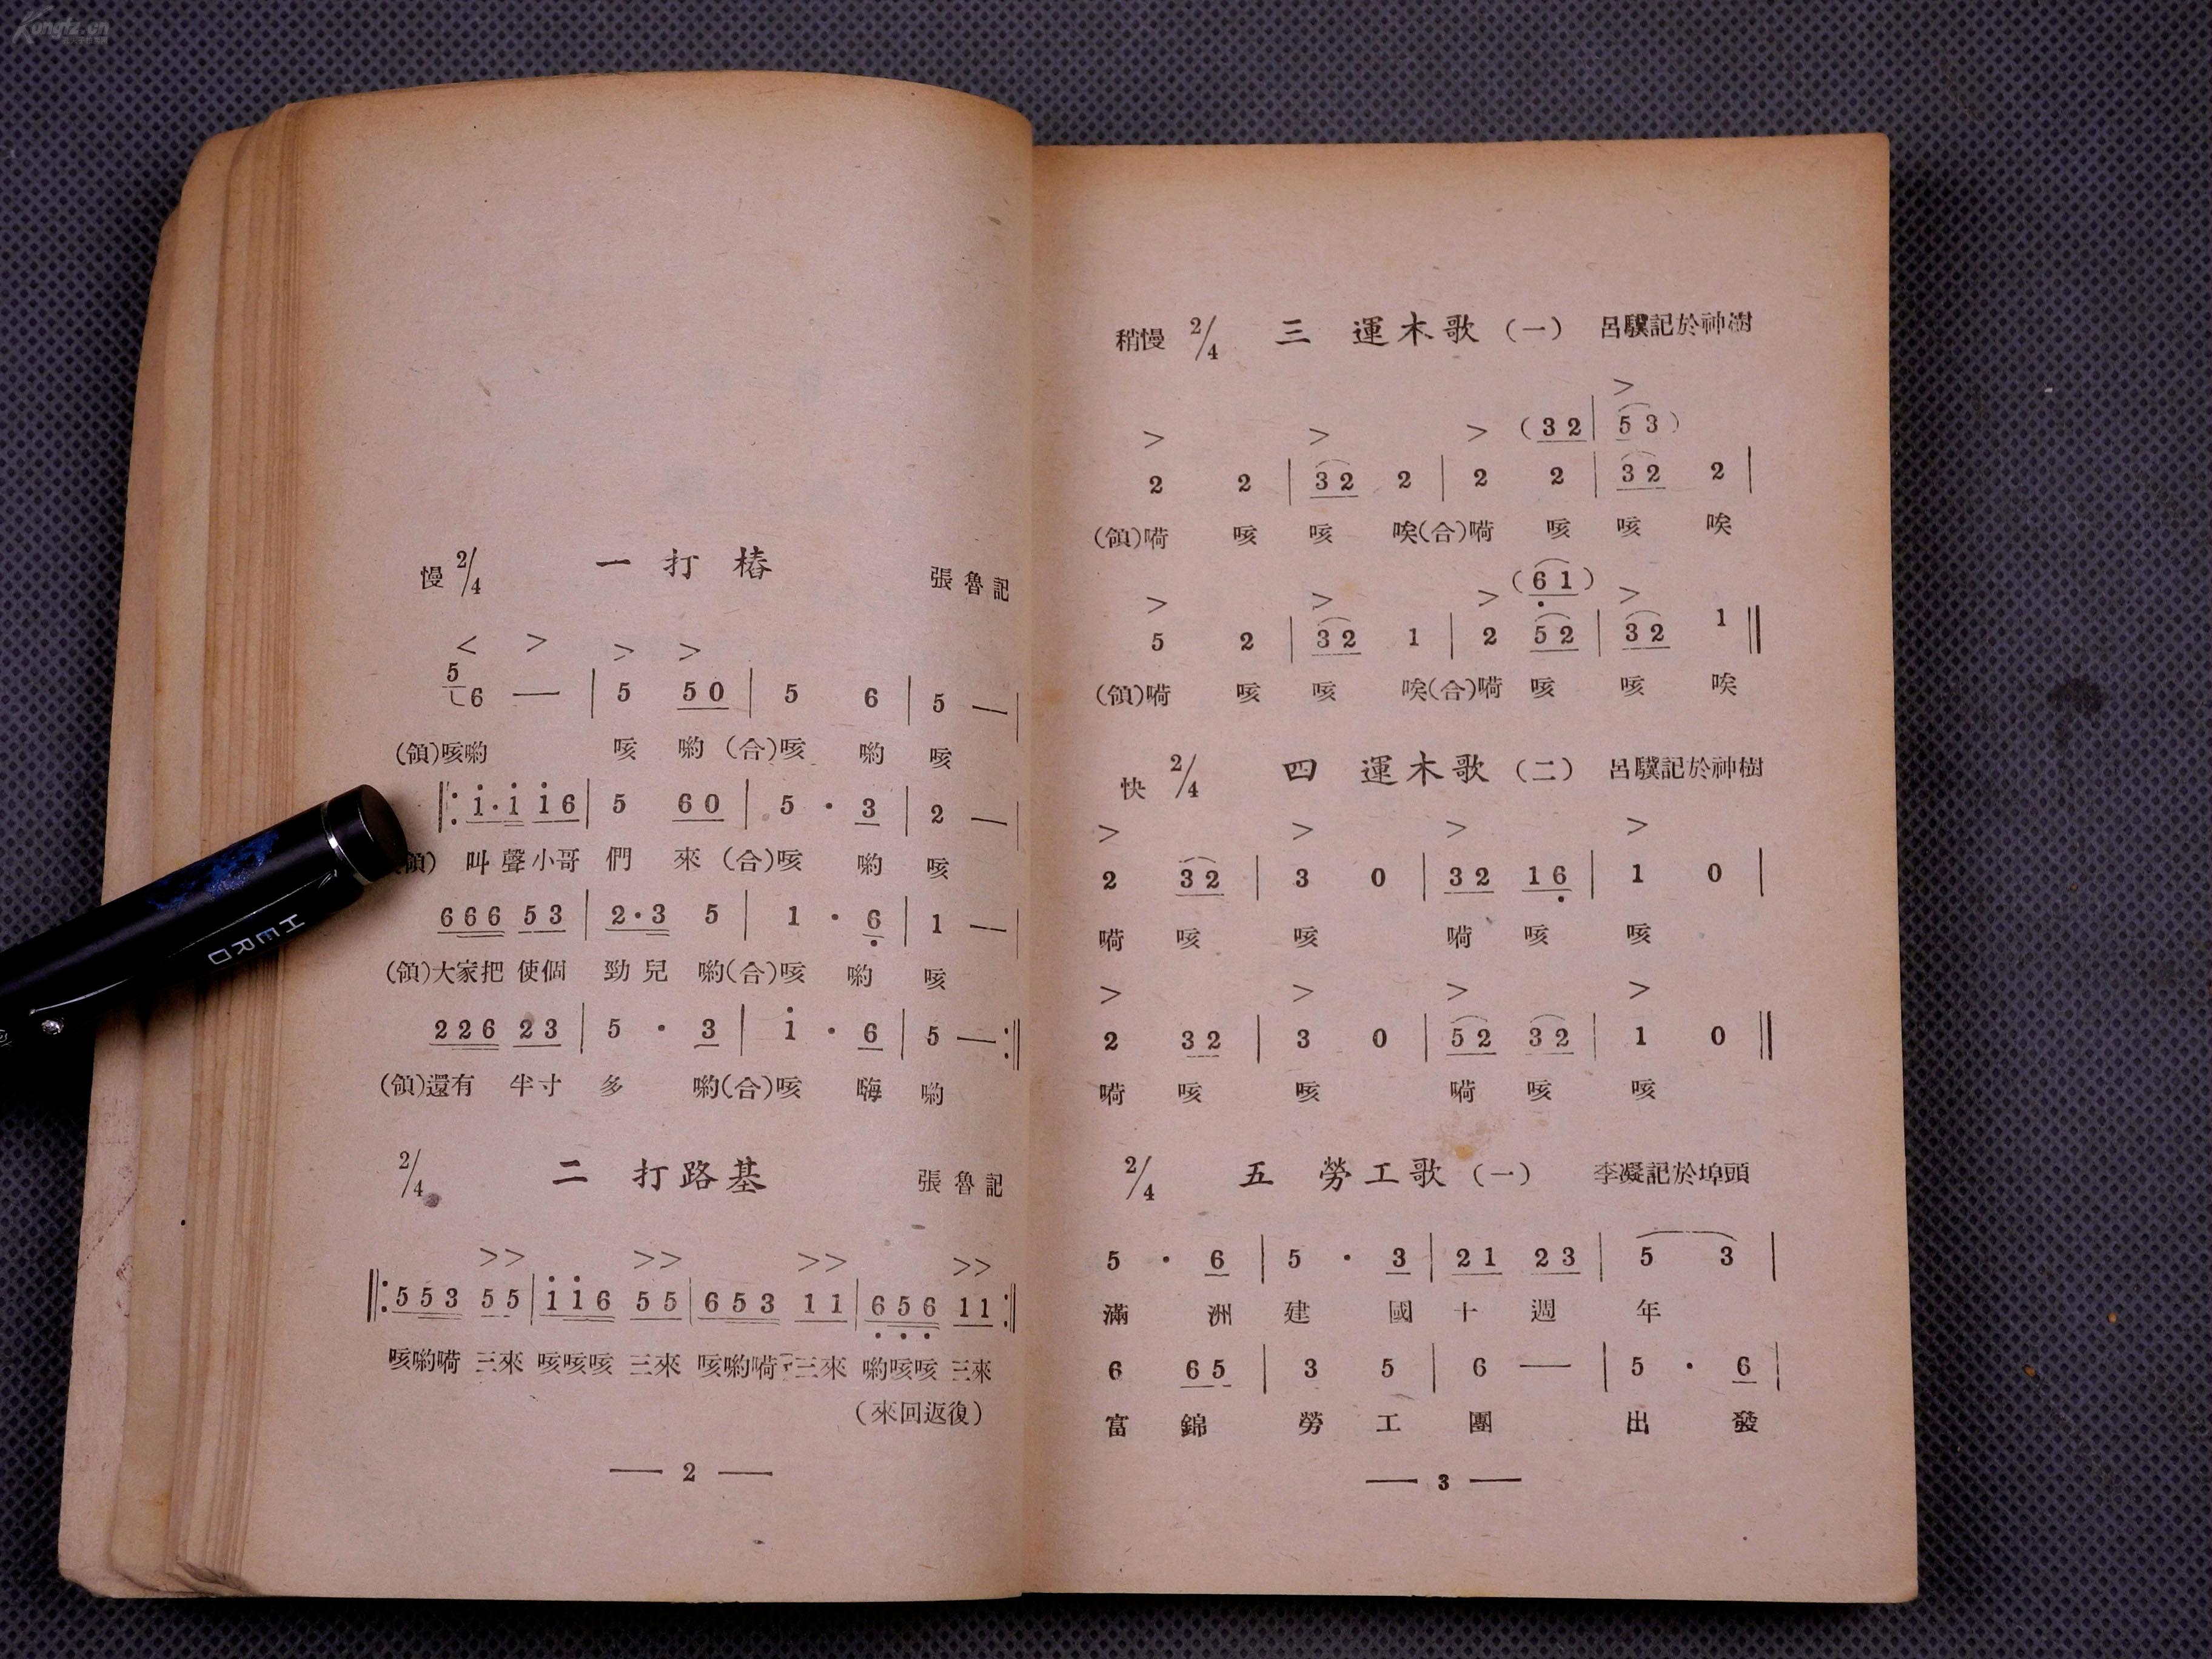 Kongfz.cn
HERO
慢 2/4 一 打 樁 張 魯 記
< > > >
5 6 — | 5 5 0 | 5 6 | 5 — |
(領)咳喲 咳 喲 (合)咳 喲 咳
‖: i · i i 6 | 5 6 0 | 5 · 3 | 2 — |
(領) 叫 聲 小哥 們 來 (合)咳 喲 咳
6 6 6 5 3 | 2 · 3 5 | 1 · 6 | 1 — |
(領)大家把 使個 勁 兒 喲(合)咳 喲 咳
2 2 6 2 3 | 5 · 3 | i · 6 | 5 — :‖
(領)還有 半寸 多 喲(合)咳 嗨 喲
2/4 二 打路基 張 魯 記
>> >> >> >>
‖: 5 5 3 5 5 | i i 6 5 5 | 6 5 3 1 1 | 6 5 6 1 1 :‖
咳喲嗬 三來 咳咳咳 三來 咳喲嗬 三來 喲咳咳 三來
(來回返復)
— 2 —
稍慢 2/4 三 運木歌(一) 呂驥記於神樹
> > > (3 2 | 5 3) >
2 2 | 3 2 2 | 2 2 | 3 2 2 |
(領)嗬 咳 咳 唉(合)嗬 咳 咳 唉
> > > (6 1) >
5 2 | 3 2 1 | 2 5 2 | 3 2 1 ‖
(領)嗬 咳 咳 唉(合)嗬 咳 咳 唉
快 2/4 四 運木歌(二) 呂驥記於神樹
> > > >
2 3 2 | 3 0 | 3 2 1 6 | 1 0 |
嗬 咳 咳 嗬 咳 咳
> > > >
2 3 2 | 3 0 | 5 2 3 2 | 1 0 ‖
嗬 咳 咳 嗬 咳 咳
2/4 五 勞工歌(一) 李凝記於埠頭
5 · 6 | 5 · 3 | 2 1 2 3 | 5 3 |
滿 洲 建 國 十 週 年
6 6 5 | 3 5 | 6 — | 5 · 6 |
富 錦 勞 工 團 出 發
— 3 —